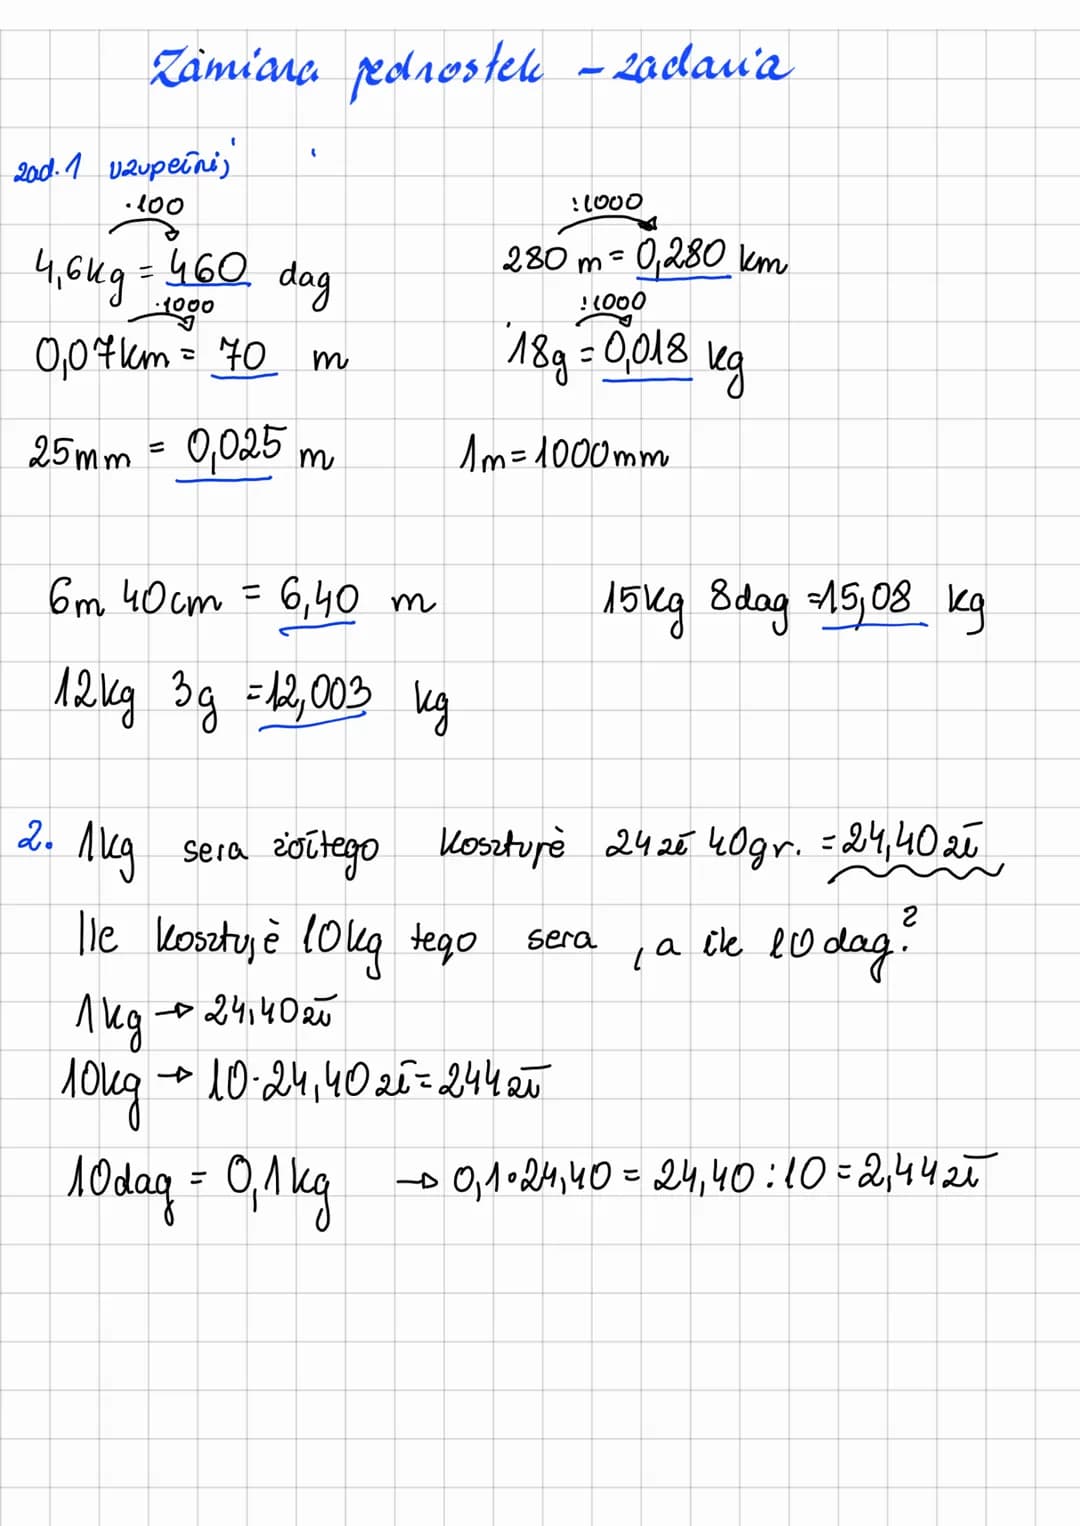 Zamiana jednostek - zadania
zad. 1 uzupełnij
·100 :1000
4,6kg = 460 dag 280 m = 0,280 km
·1000 :1000
0,07km = 70 m 18g = 0,018 kg
25mm = 0,025 m 1m = 1000mm
6m 40cm = 6,40 m 15kg 8dag = 15,08 kg
12kg 3g = 12,003 kg
2. 1kg sera żółtego kosztuje 24 zł 40gr. = 24,40 zł
Ile kosztuje 10kg tego sera , a ile 10 dag.?
1kg → 24,40zł
10kg → 10·24,40 zł = 244 zł
10dag = 0,1kg → 0,1·24,40 = 24,40 : 10 = 2,44 zł